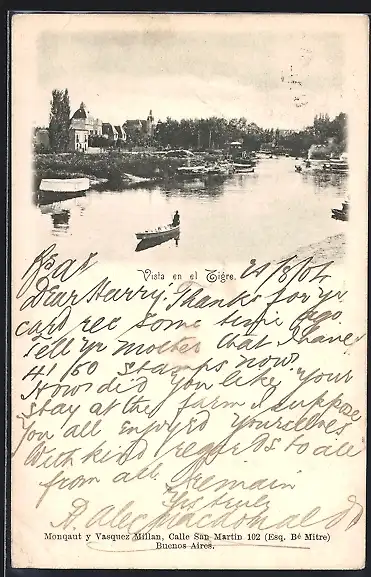 Vista en el Tigre.
Bs As 21/8/04
Dear Harry; Thanks for yr
card rec some time ago.
Tell yr mother that I have
41 60 stamps now.
How did you like your
stay at the farm I suppose
you all enjoyed yourselves
With kind regards to all
from all. remain
Yrs truly
R. Alec Macdonald
Monqaut y Vasquez Millan, Calle San Martin 102 (Esq. Bé Mitre)
Buenos Aires.